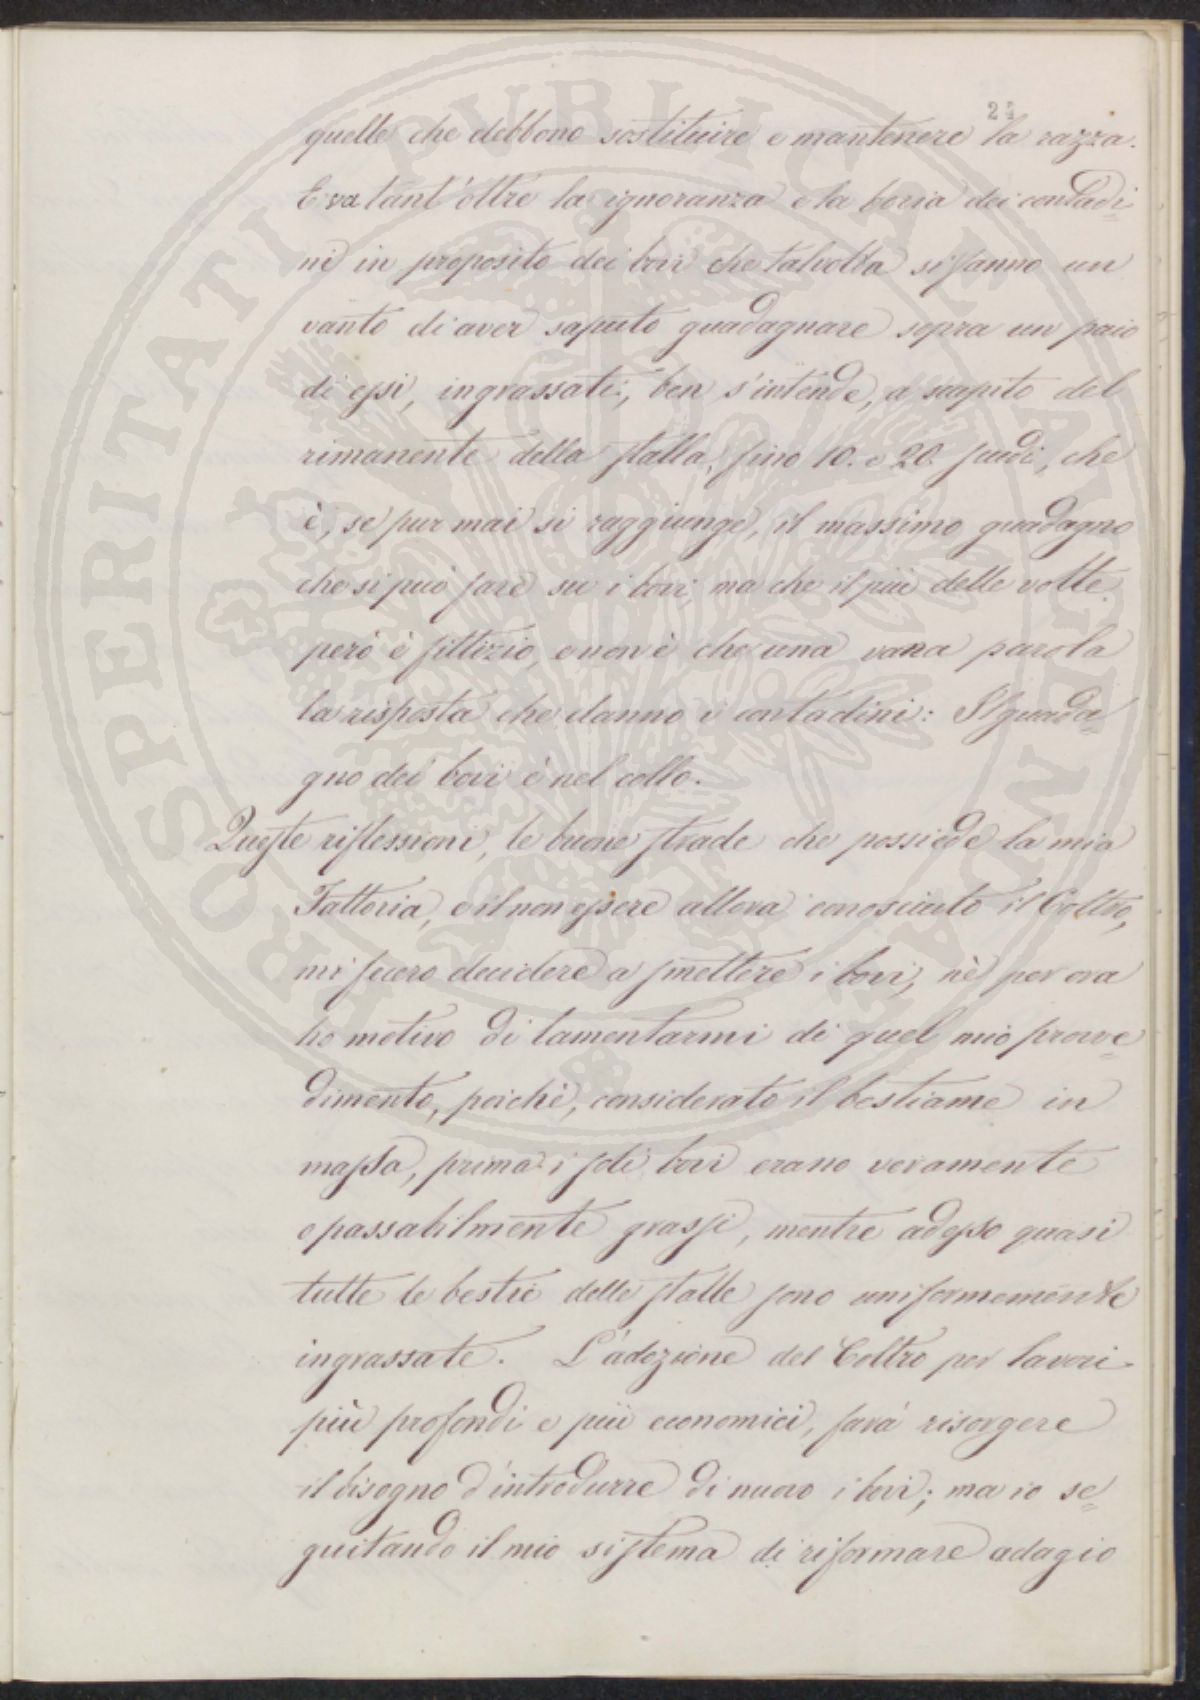 24
quelle che debbono sostituire e mantenere la razza.
E va tant'oltre la ignoranza e la boria dei contadi=
ni in proposito dei bovi che talvolta si fanno un
vanto di aver saputo guadagnare sopra un paio
di essi, ingrassati, ben s'intende, a scapito del
rimanente della stalla, fino 10. e 20. scudi, che
è, se pur mai si raggiunge, il massimo guadagno
che si può fare su i bovi, ma che il più delle volte
però è fittizio, e non è che una vana parola
la risposta che danno i contadini: Il guada=
gno dei bovi è nel collo.
Queste riflessioni, le buone strade che possiede la mia
Fattoria, e il non essere allora conosciuto il Coltro,
mi fecero decidere a smettere i bovi, nè per ora
ho motivo di lamentarmi di quel mio prove=
dimento, poichè, considerato il bestiame in
massa, prima i soli bovi erano veramente
e passabilmente grassi, mentre adesso quasi
tutte le bestie delle stalle sono uniformemente
ingrassate. L'adozione del Coltro per lavori
più profondi e più economici, farà risorgere
il bisogno d'introdurre di nuovo i bovi; ma io se=
guitando il mio sistema di riformare adagio
PROSPERITATI PVBLICAE AVGENDAE